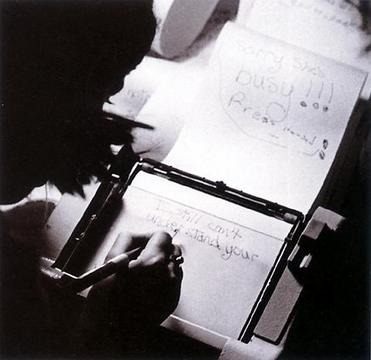 Sorry she's
busy!!!
I still can't
understand your